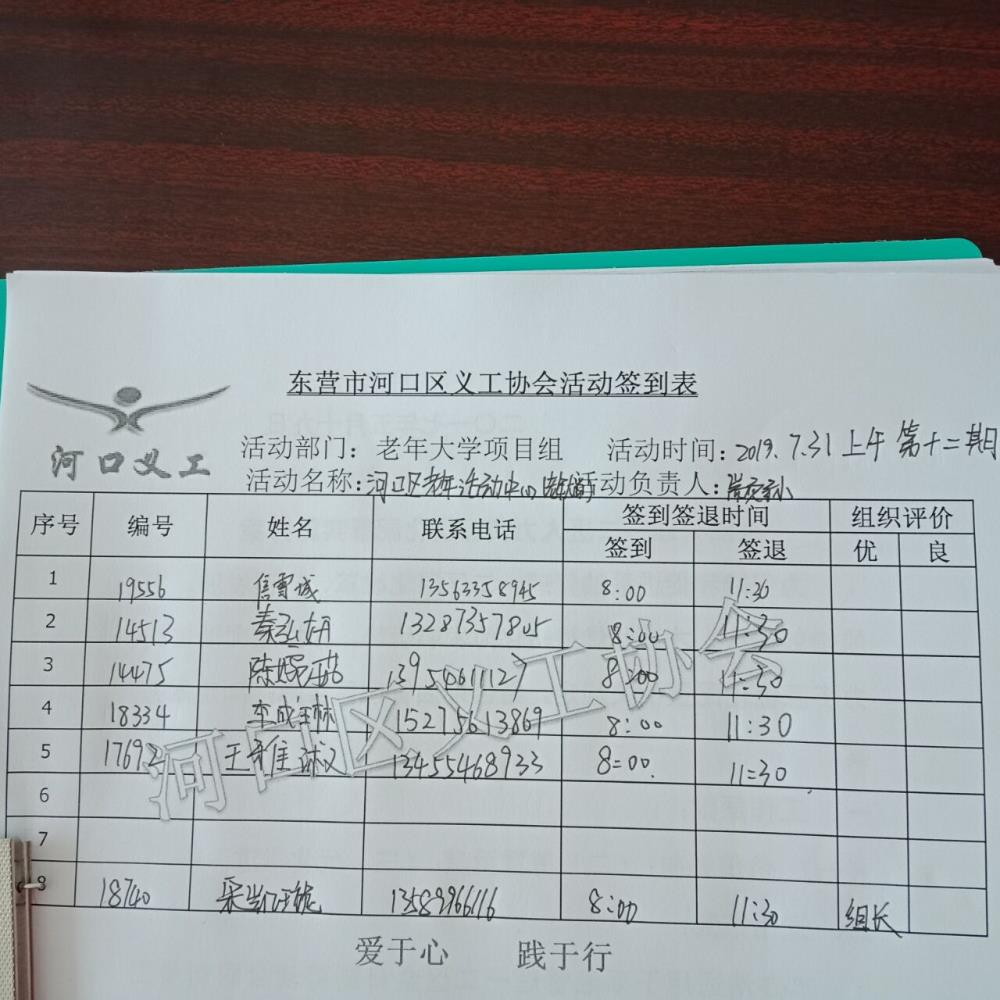 东营市河口区义工协会活动签到表
河口义工
活动部门：老年大学项目组 活动时间：2019.7.31上午 第十二期日
活动名称：河口区老年活动中心 活动负责人：
序号 编号 姓名 联系电话 签到签退时间 组织评价
签到 签退 优 良
1 19556 信雪城 13563358945 8:00 11:30
2 14513 13287357805 8:00 11:30
3 14475 13954611127 8:00 11:30
4 18334 15275613869 8:00 11:30
5 13455468933 8:00 11:30
6
7
8 18740 13589966116 8:00 11:30 组长
河口区义工协会
爱于心 践于行